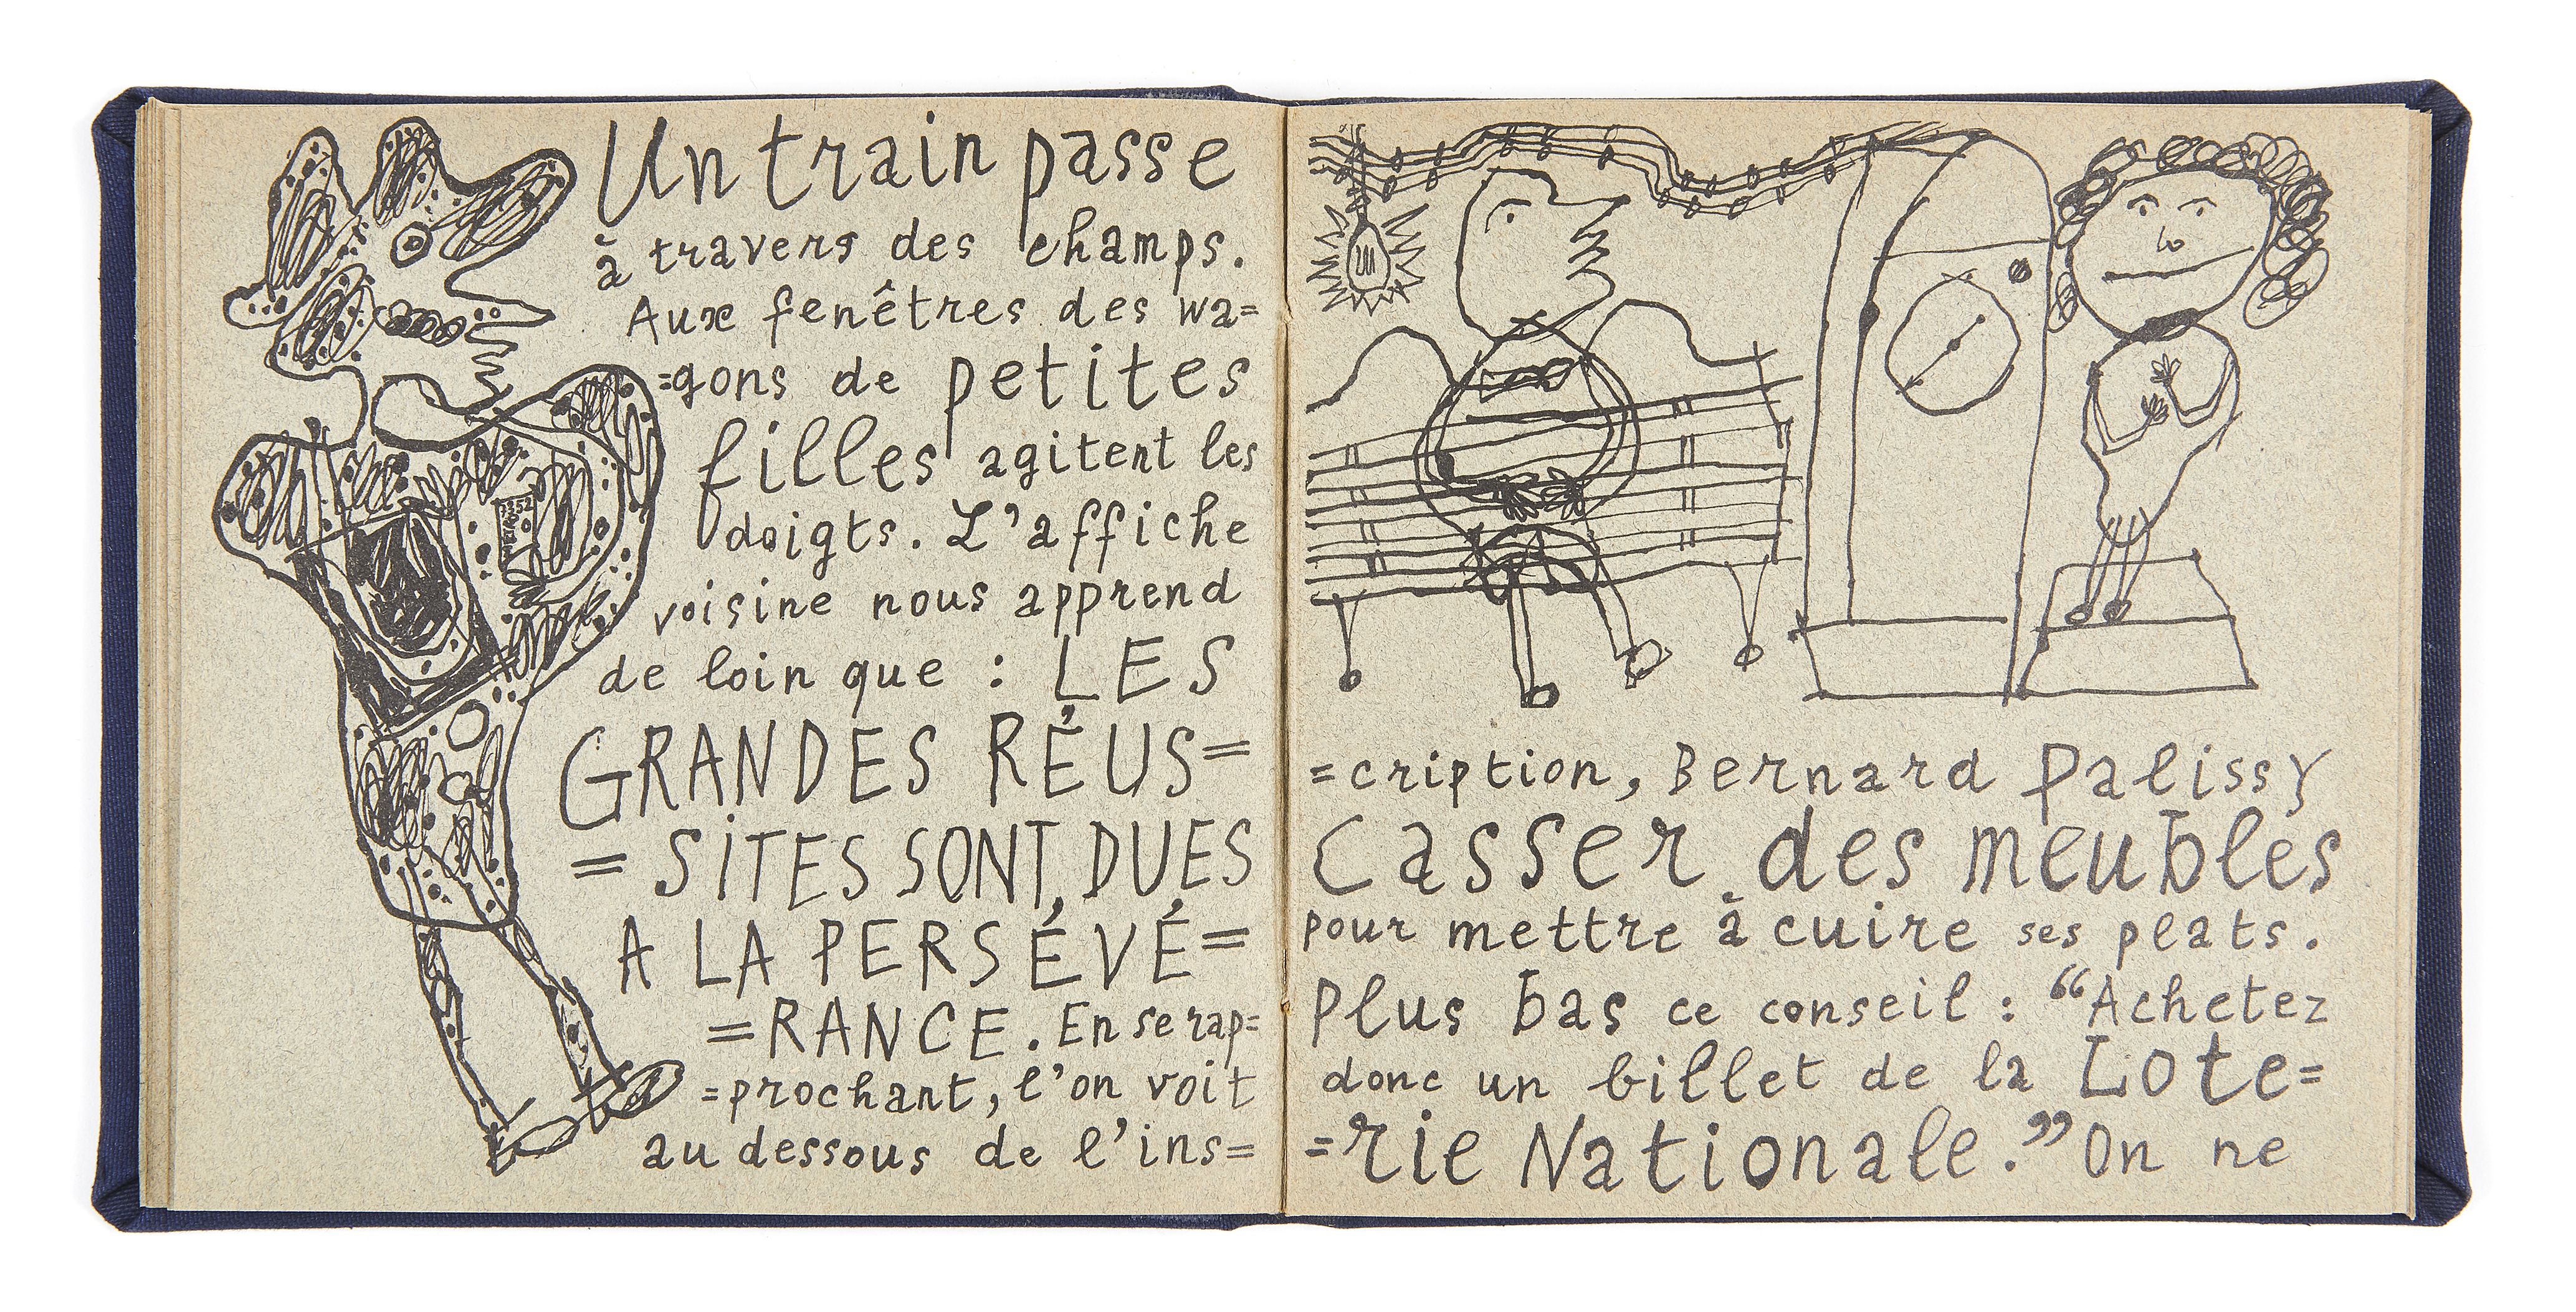 Un train passe
à travers des champs.
Aux fenêtres des wa=
=gons de petites
filles agitent les
doigts. L'affiche
voisine nous apprend
de loin que : LES
GRANDES RÉUS=
=SITES SONT DUES
A LA PERSÉVÉ=
=RANCE. En se rap=
=prochant, l'on voit
au dessous de l'ins=
=cription, Bernard Palissy
casser des meubles
pour mettre à cuire ses plats.
Plus bas ce conseil : “Achetez
donc un billet de la Lote=
=rie Nationale.” On ne